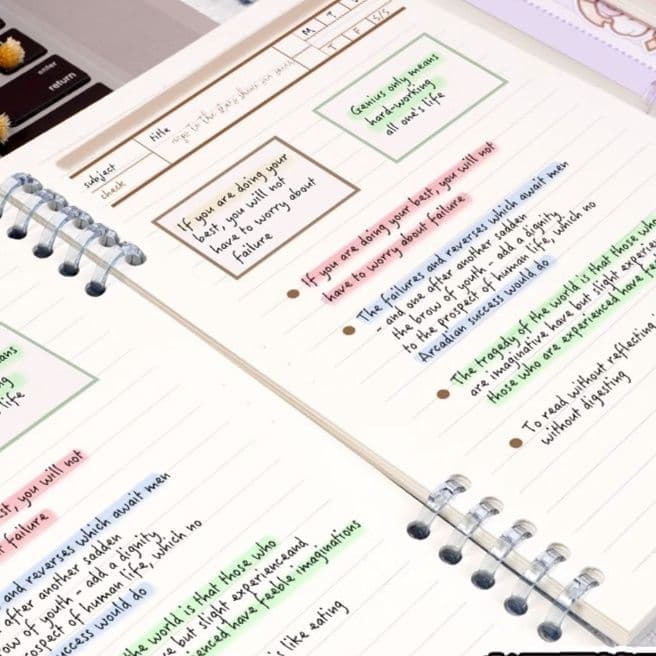 enter
return
M T
T F S/S
title
subject
check
Genius only means
hard-working
all one's life
If you are doing your
best, you will not
have to worry about
failure
If you are doing your best, you will not
have to worry about failure
The failures and reverses which await men
- and one after another sadden
the brow of youth - add a dignity
to the prospect of human life, which no
Arcadian success would do
The tragedy of the world is that those who
are imaginative have but slight
those who are experienced have
To read without reflecting
without digesting
life
you will not
failure
and reverses which await men
after another sadden
of youth - add a dignity
of human life, which no
success would do
the world is that those who
but slight experienceand
have feeble imaginations
is like eating